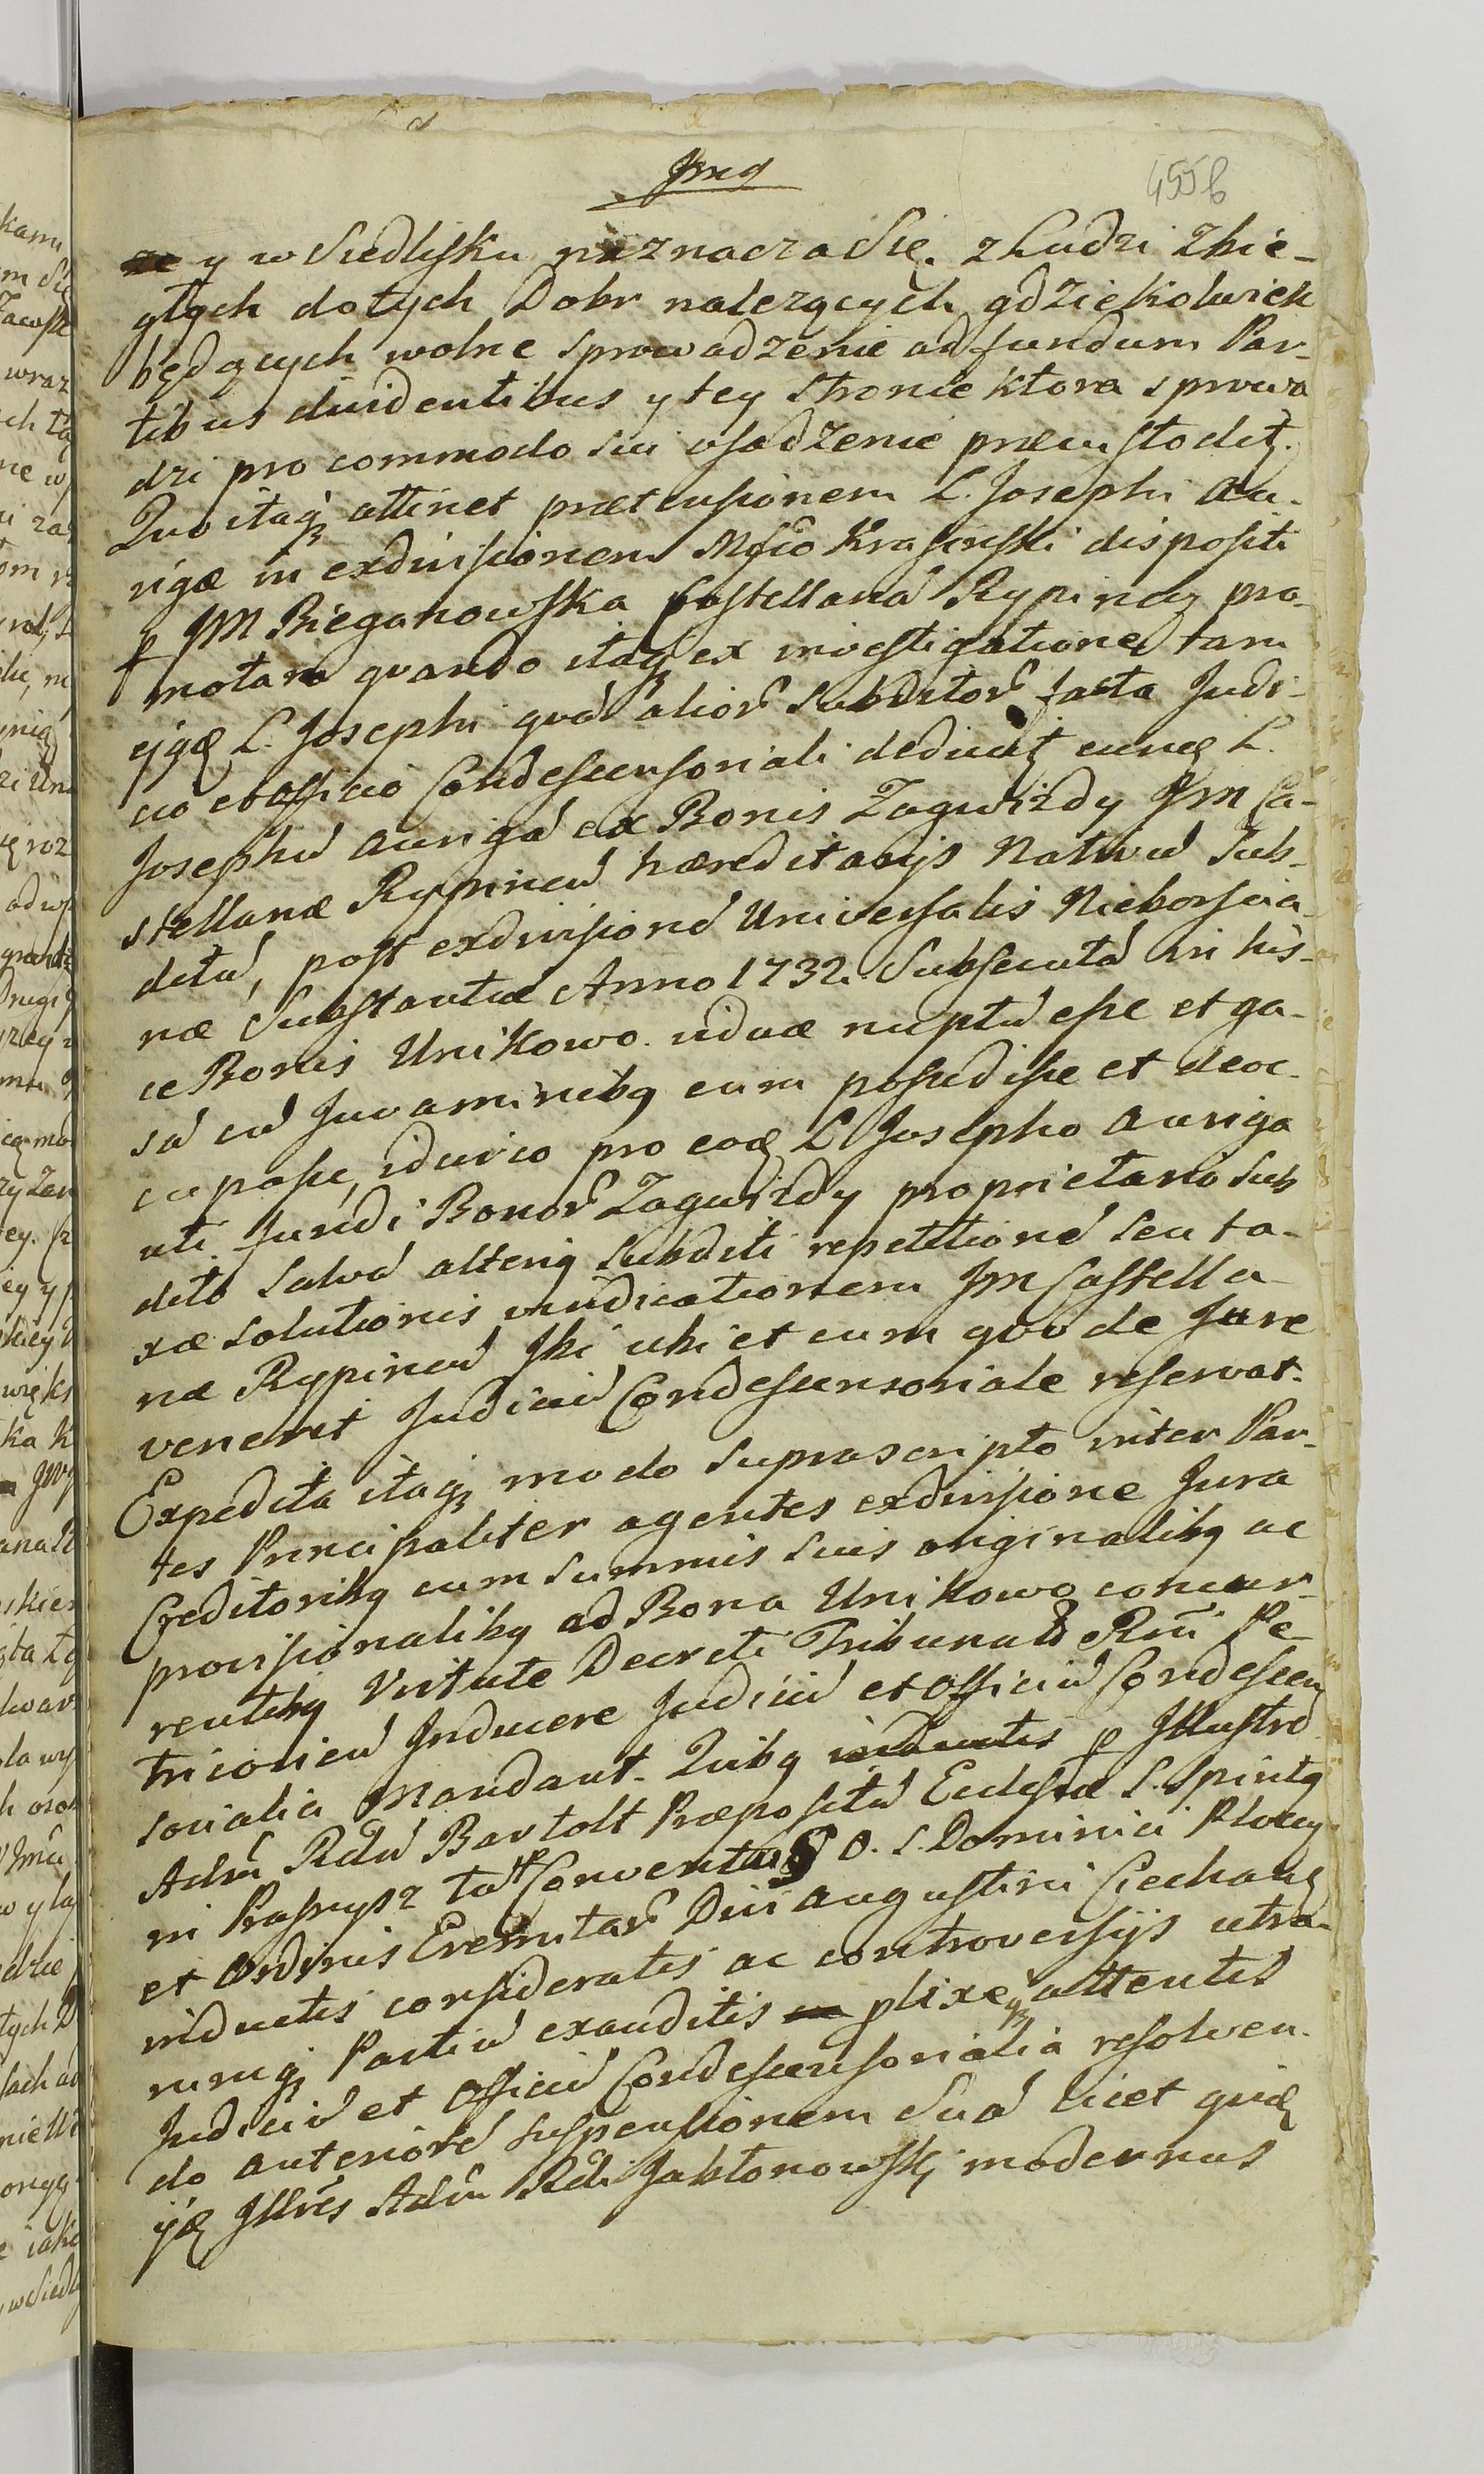 455b
y w Siedlisku naznacza Się. z Ludzi Zbie-
głych do tych Dobr nalezących gdziekolwiek
będących wolne sprowadzenie ad fundum Par-
tibus dividentibus y tey stronie ktora sprowa
dzi pro commodo sui osadzenie præcustodit.
Quo itaq attinet prætensionem L. Josephi Au-
rigæ in exdivisionem Mfico Krasinski dispositi
p JM Bieganowska Castellana Rypinen pro-
motam quando itaq ex investigatione tam
ejqd L. Josephi quā aliorˢ Subditorˢ facta Judi-
cio et officio Condescensoriali deducit eund L.
Josephū Aurigā ex Bonis Zagwizdy JM Ca-
stellanæ Rypinen hæreditarijs Nativū Sub-
ditū, post exdivisionē Universalis Nieborscia-
næ Substantiæ Anno 1732. Subsecutā in his-
ce Bonis Unikowo viduæ nuptū esse et ga-
sā cū Juvaminibq eum possedisse et deoc-
cupasse, idcirco pro eod L Josepho Auriga
uti fundi Bonorˢ Zagwizdy proprietario Sub
dito Salvā alteriq Subditi repetitionē seu ta-
xæ solutionis vindicationem JM Castella-
næ Rypinen Ski ubi et cum quo de Jure
venerit Judiciū Condescensoriale reservat.
Expedita itaq modo suprascripto inter Par-
tes Principaliter agentes exdivisione Jura
Creditoribq cum Summis suis originalibq ac
provisionalibq ad Bona Unikowo concur-
rentibq Virtute Decreti Tribunalis Rni Pe-
tricovien Inducere Judiciū et Officiū Condescen
sorialia Mandant. Quibq inductis p Illustrē
Adm Rdū Bartolt Præpositū Ecclesiæ S. Spiritq
in Prasnysz tū Conventū O. S. Dominici Plocen
et Ordinis Eremitarˢ Divi Augustini Ciechan
inductis consideratis ac controversijs utra-
rumq Partiū exauditis plixeq attentis
Judiciū et Officiū Condescensorialia resolven-
do anteriorē suspensionem Suā licet quid
ijd Illres Adm Rdi Jabłonowski modernus